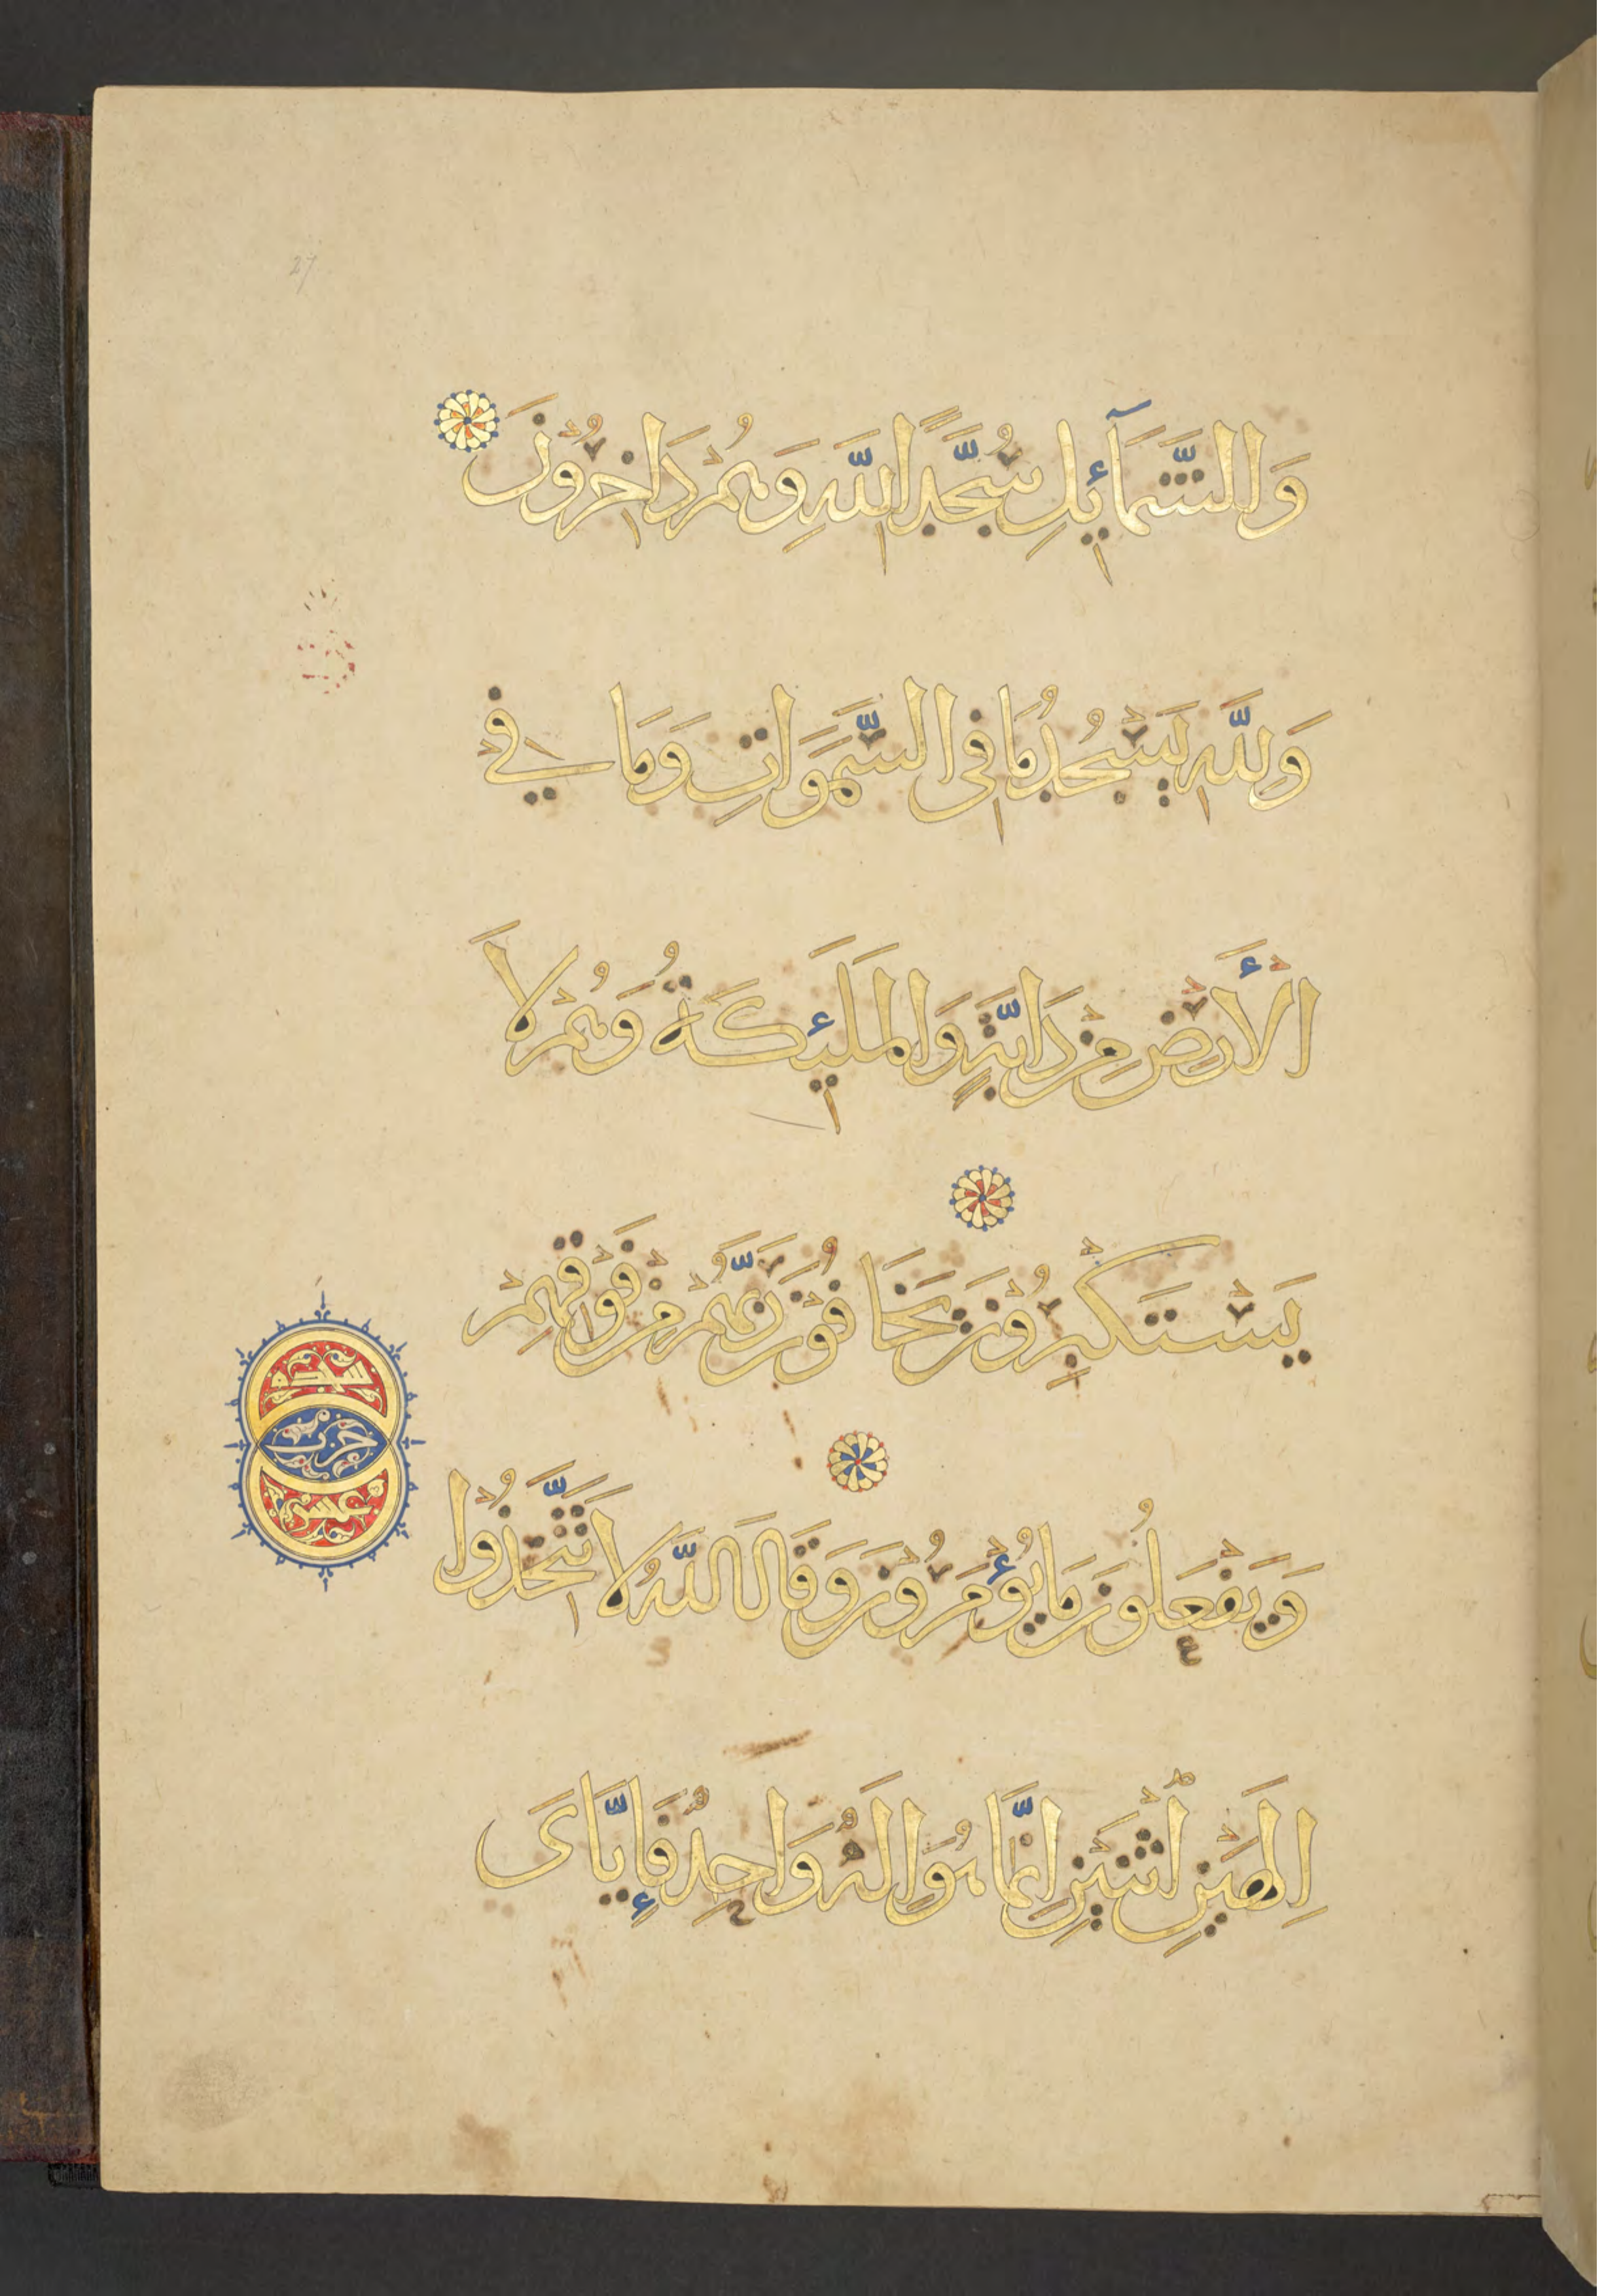 وَالشَّمَآئِلِ سُجَّدًا لِلَّهِ وَهُمْ دَاخِرُونَ
وَلِلَّهِ يَسْجُدُ مَا فِى السَّمَوَاتِ وَمَا فِي
الْأَرْضِ مِنْ دَابَّةٍ وَالْمَلَئِكَةُ وَهُمْ لَا
يَسْتَكْبِرُونَ يَخَافُونَ رَبَّهُمْ مِنْ فَوْقِهِمْ
وَيَفْعَلُونَ مَا يُؤْمَرُونَ وَقَالَ اللَّهُ لَا تَتَّخِذُوا
إِلَهَيْنِ اثْنَيْنِ إِنَّمَا هُوَ إِلَهٌ وَاحِدٌ فَإِيَّاىَ
سجدة
حزب
27